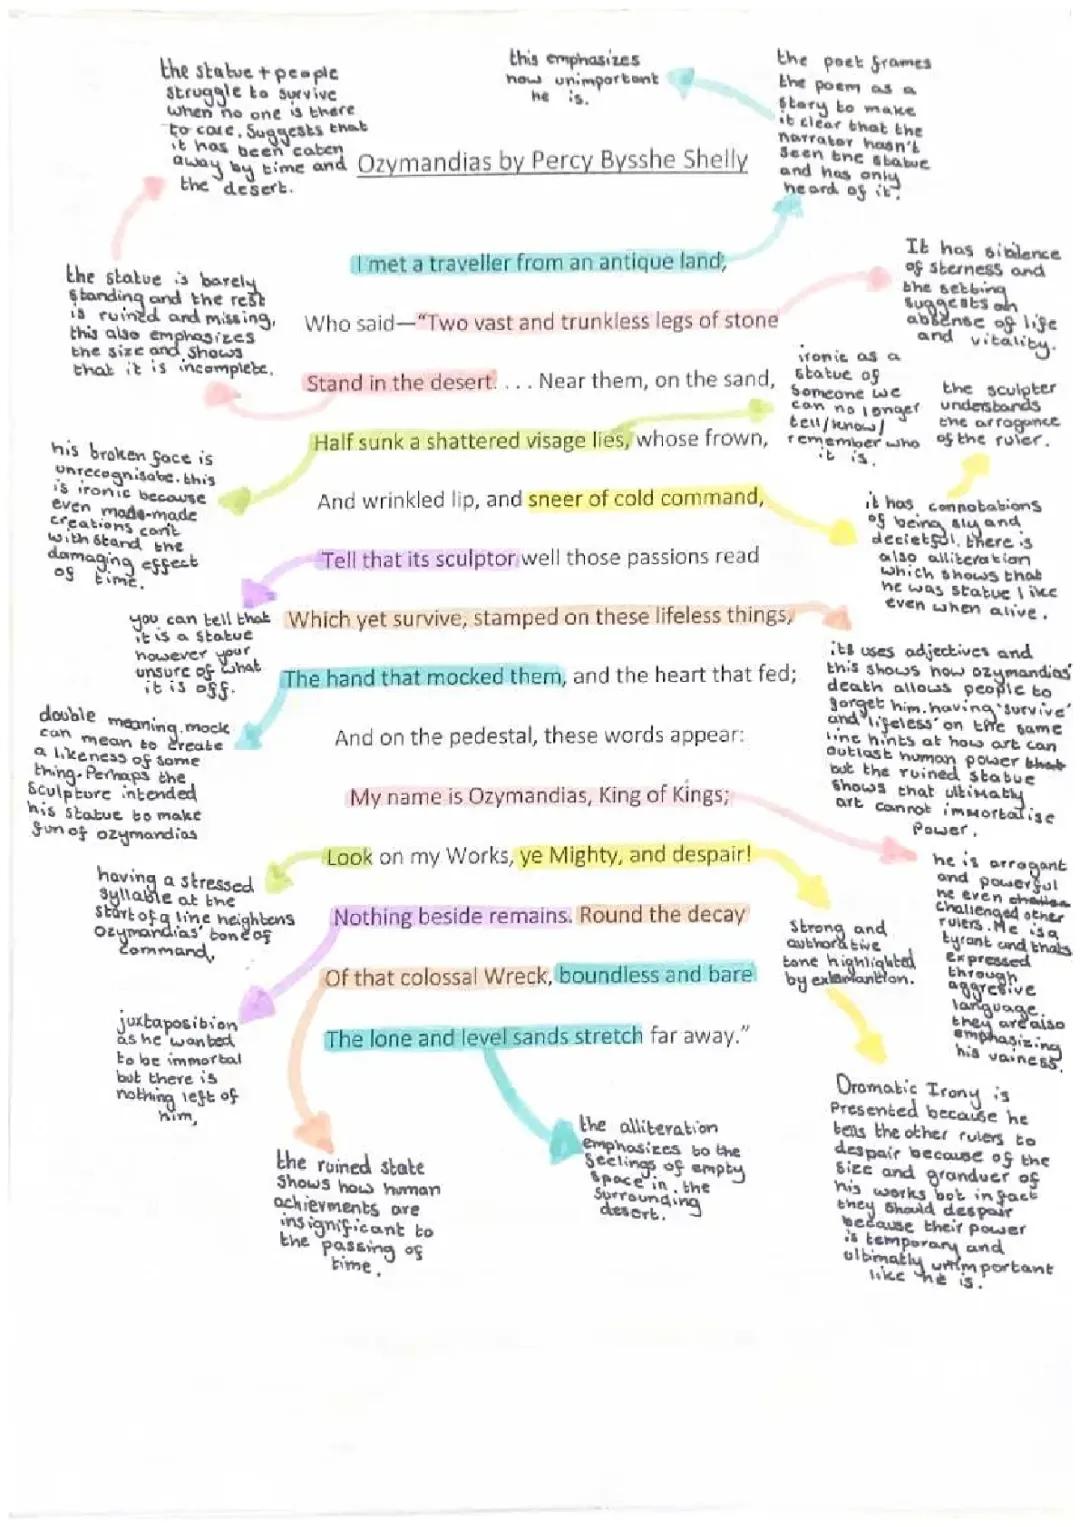 the statue + people
struggle to survive
when no one is there
to care. Suggests that
it has been eaten
away by time and
the desert.
this emphasizes
how unimportant
he is.
the poet frames
the poem as a
story to make
it clear that the
narrator hasn't
seen the statue
and has only
heard of it.
Ozymandias by Percy Bysshe Shelly
I met a traveller from an antique land,
Who said—"Two vast and trunkless legs of stone
Stand in the desert. . . . Near them, on the sand,
Half sunk a shattered visage lies, whose frown,
And wrinkled lip, and sneer of cold command,
Tell that its sculptor well those passions read
Which yet survive, stamped on these lifeless things,
The hand that mocked them, and the heart that fed;
And on the pedestal, these words appear:
My name is Ozymandias, King of Kings;
Look on my Works, ye Mighty, and despair!
Nothing beside remains. Round the decay
Of that colossal Wreck, boundless and bare
The lone and level sands stretch far away."
the statue is barely
standing and the rest
is ruined and missing,
this also emphasizes
the size and shows
that it is incomplete.
his broken face is
unrecognisabe. this
is ironic because
even made-made
creations can't
withstand the
damaging effect
of time.
you can tell that
it is a statue
however your
unsure of what
it is off.
double meaning. mock
can mean to create
a likeness of some
thing. Perhaps the
sculpture intended
his statue to make
fun of ozymandias
having a stressed
syllable at the
start of a line heightens
Ozymandias' tone of
command.
juxtaposition
as he wanted
to be immortal
but there is
nothing left of
him.
the ruined state
shows how human
achievments are
insignificant to
the passing of
time.
the alliteration
emphasizes to the
feelings of empty
space in the
surrounding
desert.
It has sibilence
of sterness and
the setting
suggests an
absense of life
and vitality.
ironic as a
statue of
someone we
can no longer
tell/know/
remember who
it is.
the sculpter
understands
the arrogance
of the ruler.
it has connotations
of being sly and
decietful. there is
also alliteration
which shows that
he was statue like
even when alive.
its uses adjectives and
this shows how ozymandias'
death allows people to
forget him. having 'survive'
and 'lifeless' on the same
line hints at how art can
outlast human power that
but the ruined statue
shows that ultimatly
art cannot immortalise
power.
he is arrogant
and powerful
he even
challenged other
rulers. He is a
tyrant and thats
expressed
through
aggresive
language.
they are also
emphasizing
his vainess.
Strong and
authorative
tone highlighted
by
Dramatic Irony is
presented because he
tells the other rulers to
despair because of the
size and granduer of
his works but in fact
they should despair
because their power
is temporary and
ultimatly unimportant
like he is.